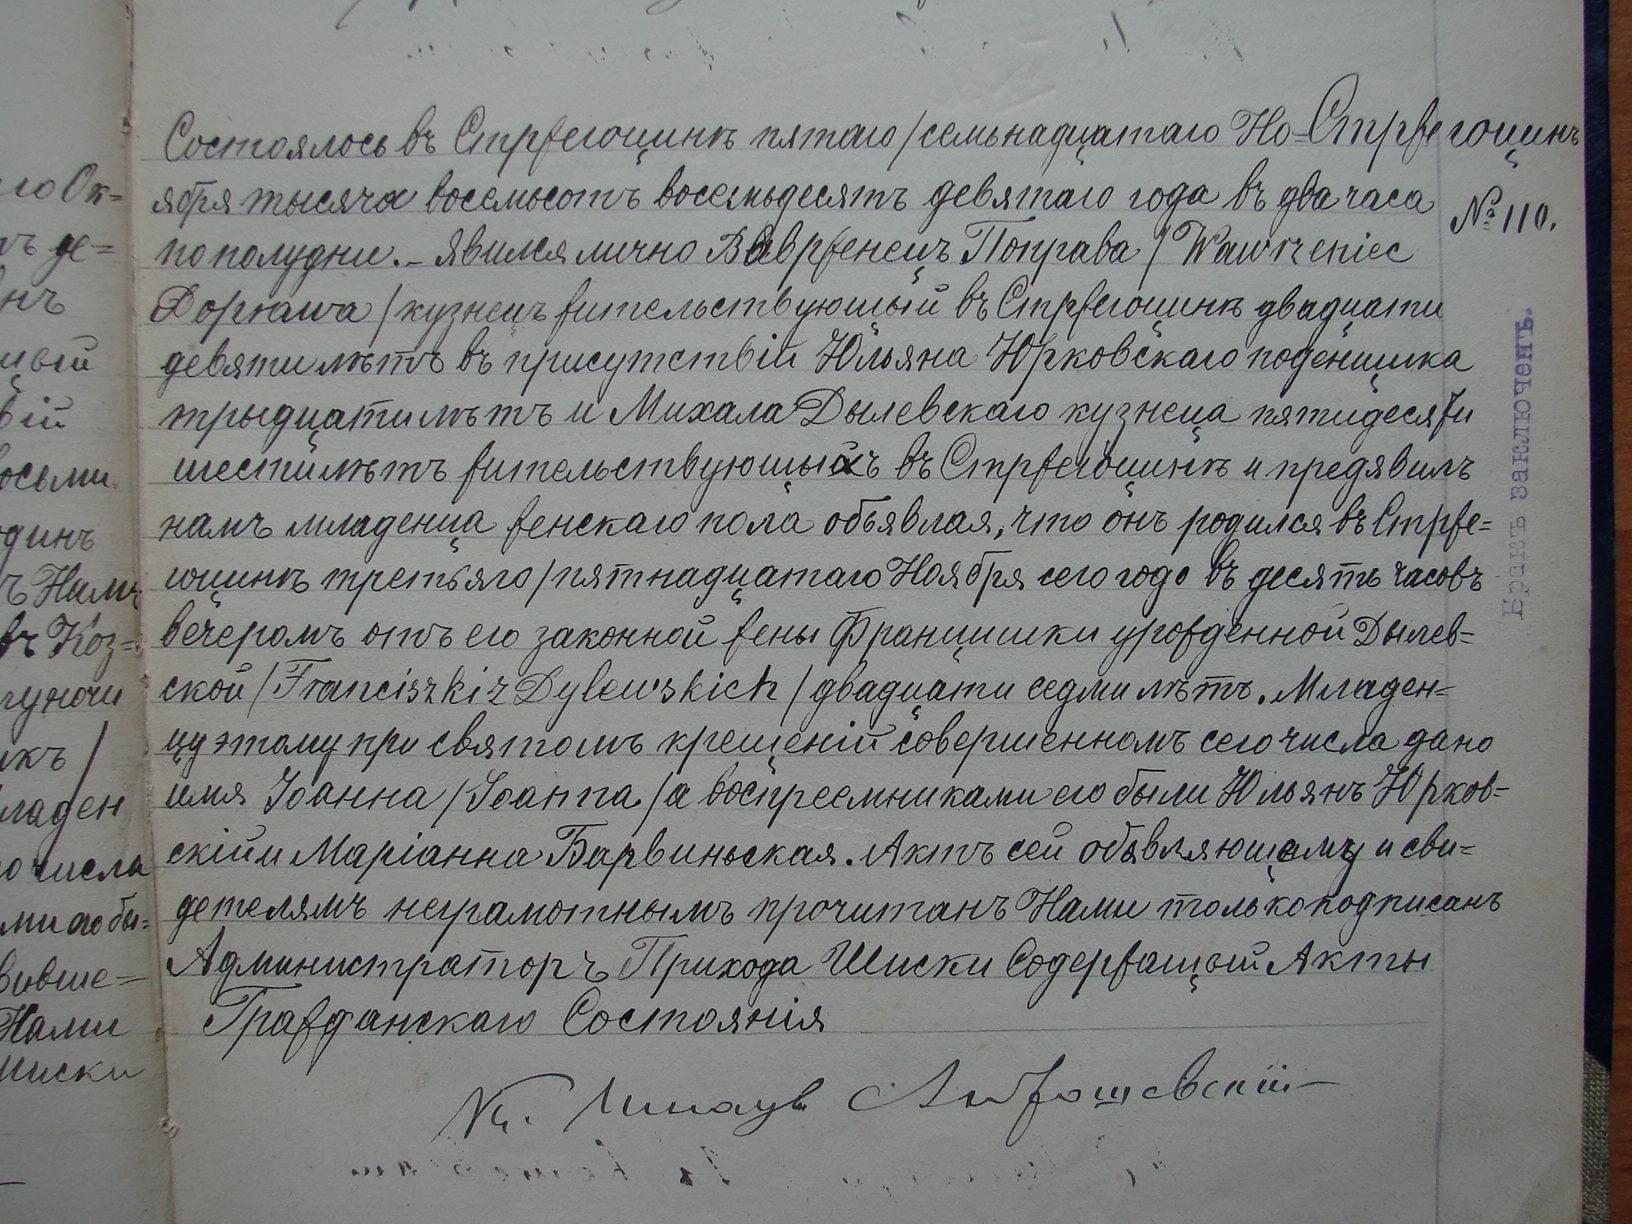 Состоялось въ Стржегоцинѣ пятаго/семьнадцатаго Но=
ября тысяча восемьсотъ восемьдесятъ девятаго года въ два часа
по полудни. – Явился лично Ваврженецъ Поправа / Wawrzeniec
/ кузнецъ жительствующый въ Стржегоцинѣ двадцати
девяти лѣтъ въ присутствіи Юльяна Юрковскаго поденщика
трыдцати лѣтъ и Михала Дылевскаго кузнеца пятидесяти
шести лѣтъ жительствующыхъ въ Стржегоцинѣ и предявилъ
намъ младенца женскаго пола объявлая, что онъ родился въ Стрже=
гоцинѣ третьяго/пятнадцатаго Ноября сего года въ десять часовъ
вечеромъ отъ его законной жены Францишки урожденной Дылев=
ской /Franciszki z Dylewskich/ двадцати седми лѣтъ. Младен=
цу этому при святомъ крещеніи совершенномъ сего числа дано
имя Іоанна /Joanna/ а воспреемниками его были Юльянъ Юрков=
скій и Маріанна Барвиньская. Актъ сей обявляющему и сви=
детелямъ неграмотнымъ прочитанъ Нами только подписанъ
Администраторъ Прихода Шиски Содержащый Акты
Гражданскаго Состоянія
Кс.
Стржегоцинъ
№ 110.
Бракъ заключенъ.
го Ок=
ъ де=
нъ
цый
вій
осьми
динъ
ъ Намъ
въ Коз=
гуночи
икъ /
ладен
о числа
ми его бы=
вивше=
Нами
Шиски